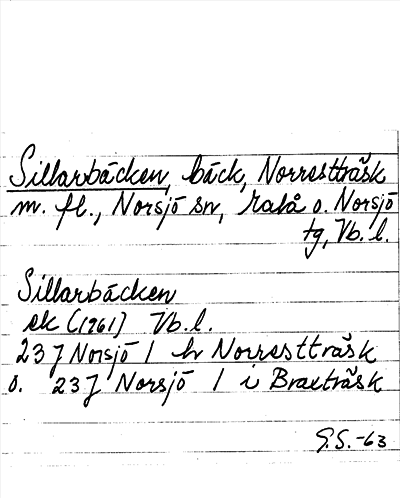 Sillarbäcken, bäck, Norresttråsk
m. fl., Norsjö sn, Malå o. Norsjö
tg, Vb. l.
Sillarbäcken
ek (1961) Vb. l.
23 J Norsjö 1 hr Norresttråsk
o. 23 J Norsjö 1 i Braxtråsk
G.S. -63